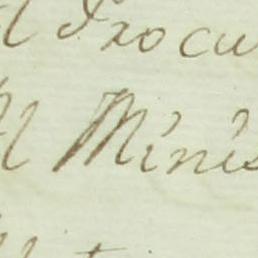 l Procu
Al Minis